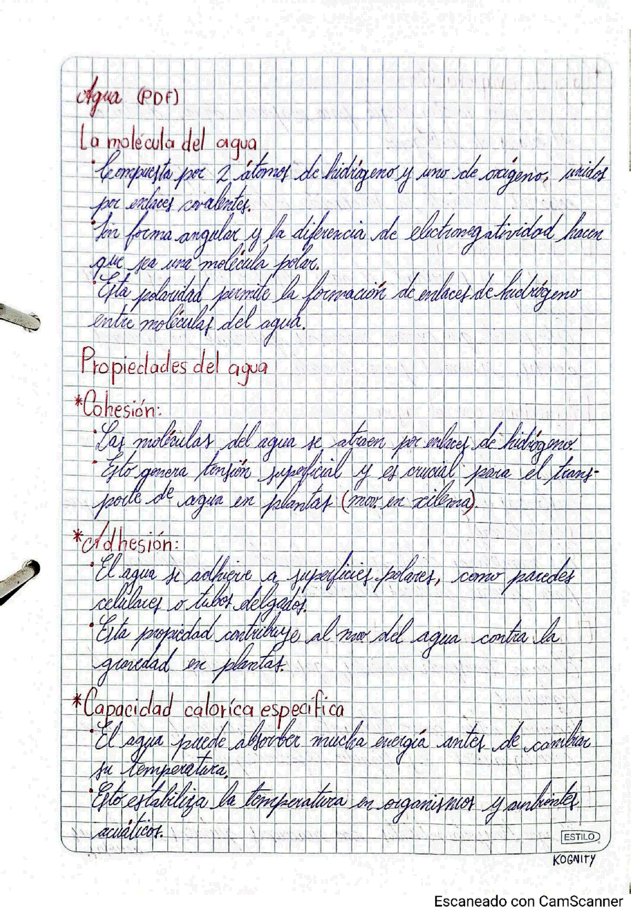 Agua (PDF)
La molécula del agua
· Compuesta por 2 átomos de hidrógeno y uno de oxígeno, unidos
por enlaces covalentes.
· Su forma angular y la diferencia de electronegatividad hacen
que sea una molécula polar.
· Esta polaridad permite la formación de enlaces de hidrógeno
entre moléculas del agua.
Propiedades del agua
*Cohesión:
· Las moléculas del agua se atraen por enlaces de hidrógeno.
· Esto genera tensión superficial y es crucial para el trans-
porte de agua en plantas (mov en xilema).
*Adhesión:
· El agua se adhiere a superficies polares, como paredes
celulares o tubos delgados.
· Esta propiedad contribuye al mov del agua contra la
gravedad en plantas.
*Capacidad caloríca especifica
· El agua puede absorber mucha energía antes de cambiar
su temperatura.
· Esto estabiliza la temperatura en organismos y ambientes
acuáticos.
ESTILO
KOGNITY
Escaneado con CamScanner